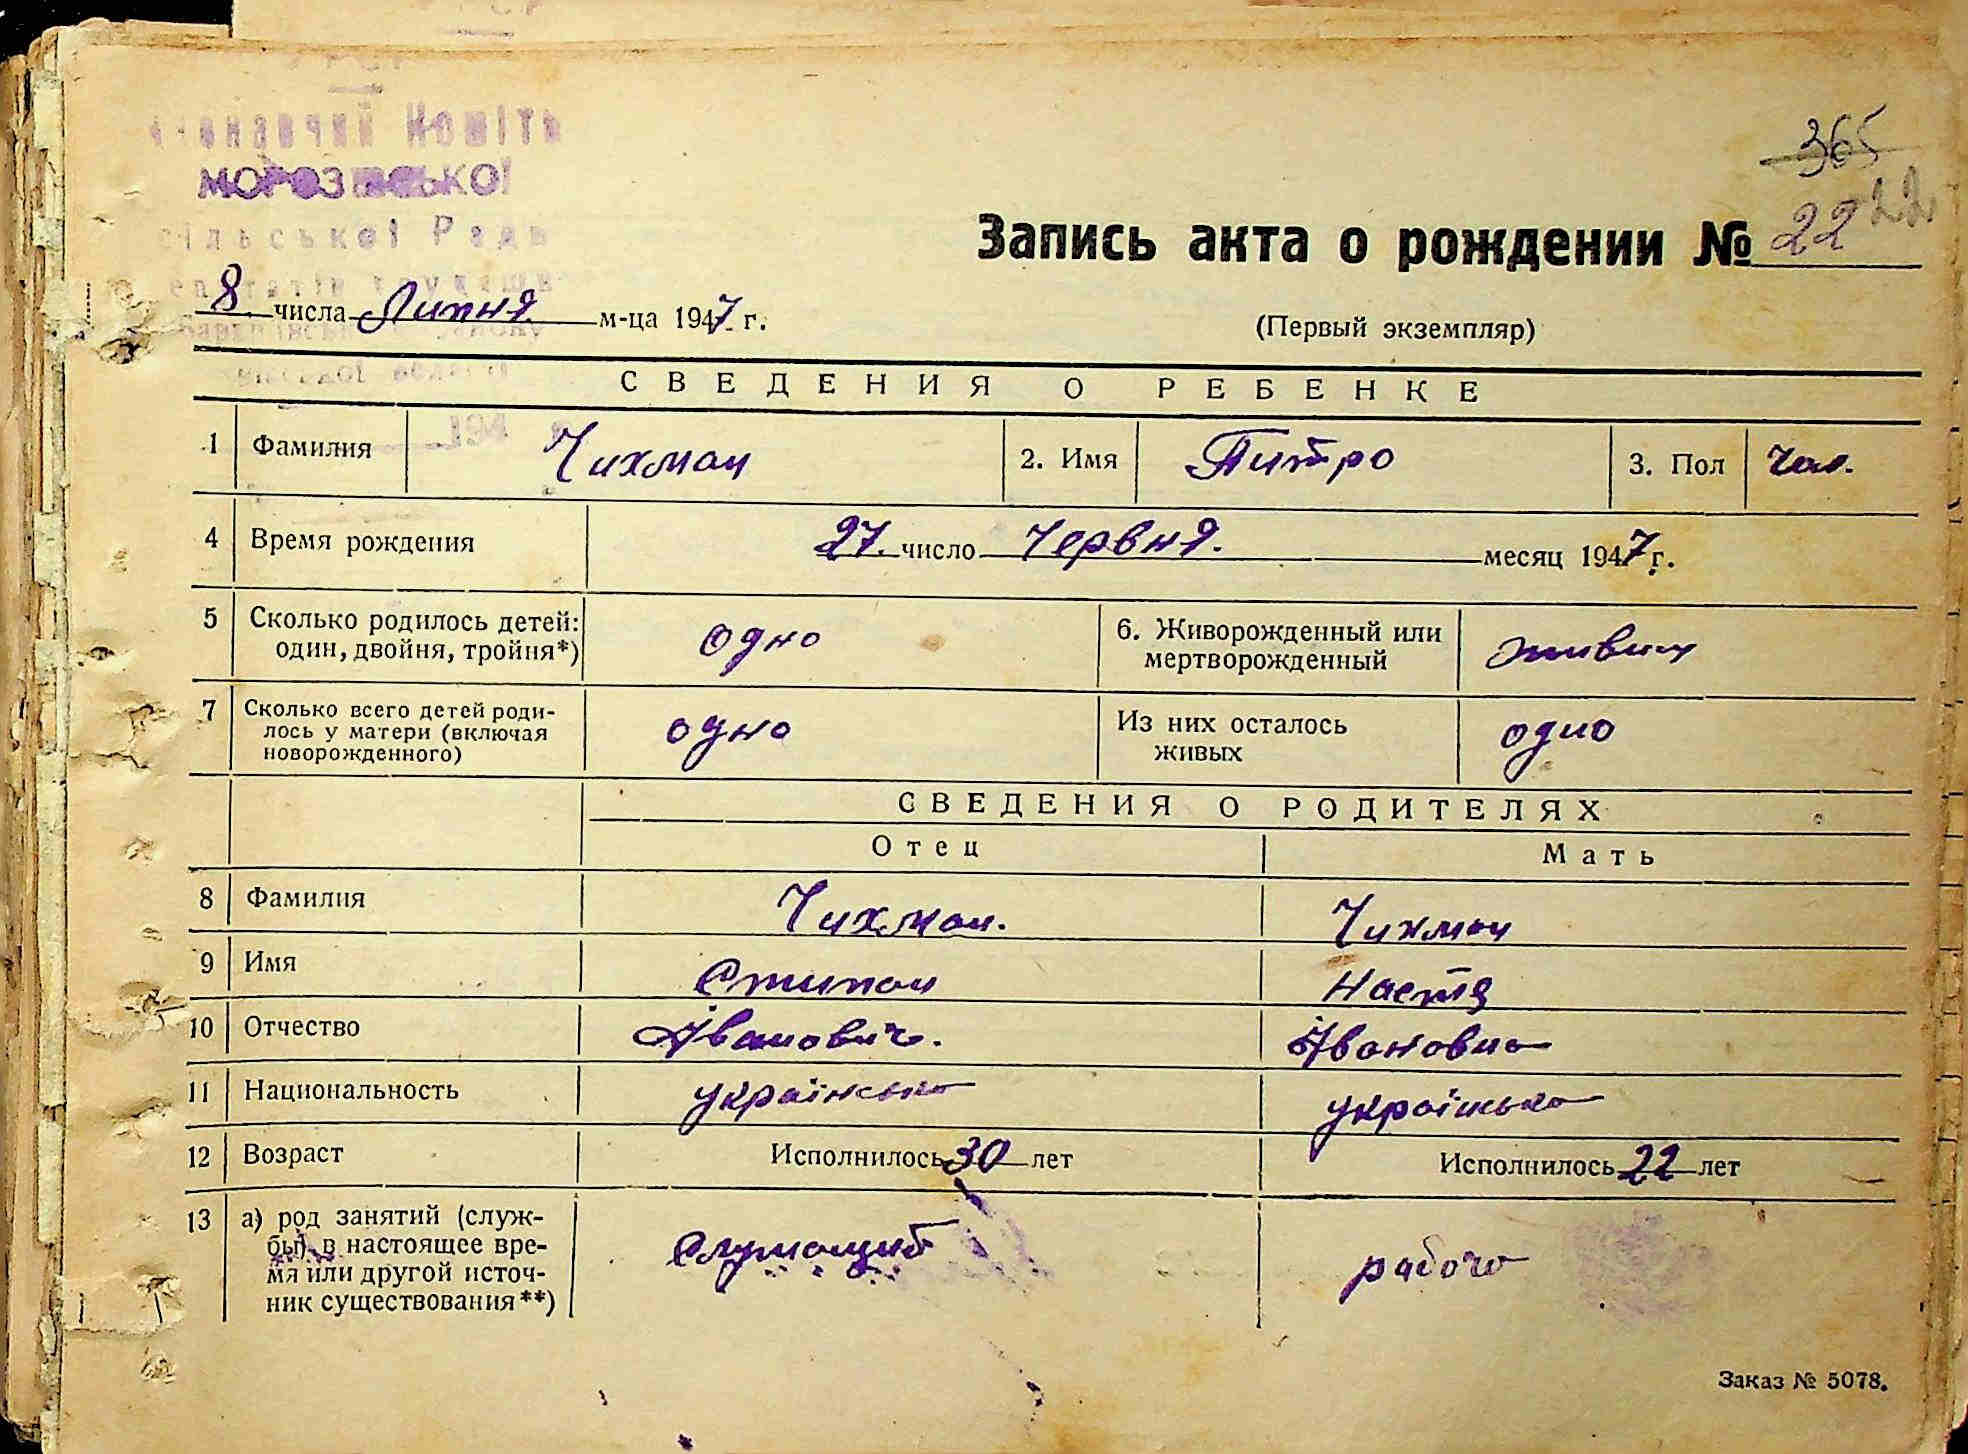 МОРОЗІВСЬКОЇ
сільської Ради
365
Запись акта о рождении № 22 22
8 числа Липня м-ца 1947 г.
(Первый экземпляр)
СВЕДЕНИЯ О РЕБЕНКЕ
1 Фамилия Чихман 2. Имя Питро 3. Пол Чол.
4 Время рождения 27 число Червня. месяц 1947 г.
5 Сколько родилось детей: одно 6. Живорожденный или живим
один, двойня, тройня*) мертворожденный
7 Сколько всего детей роди- одно Из них осталось одно
лось у матери (включая живых
новорожденного)
СВЕДЕНИЯ О РОДИТЕЛЯХ
Отец Мать
8 Фамилия Чихман. Чихман
9 Имя Стипан Настя
10 Отчество Іванович. Івановна
11 Национальность українська українська
12 Возраст Исполнилось 30 лет Исполнилось 22 лет
13 а) род занятий (служ- Служащий рабоча
бы) в настоящее вре-
мя или другой источ-
ник существования**)
Заказ № 5078.